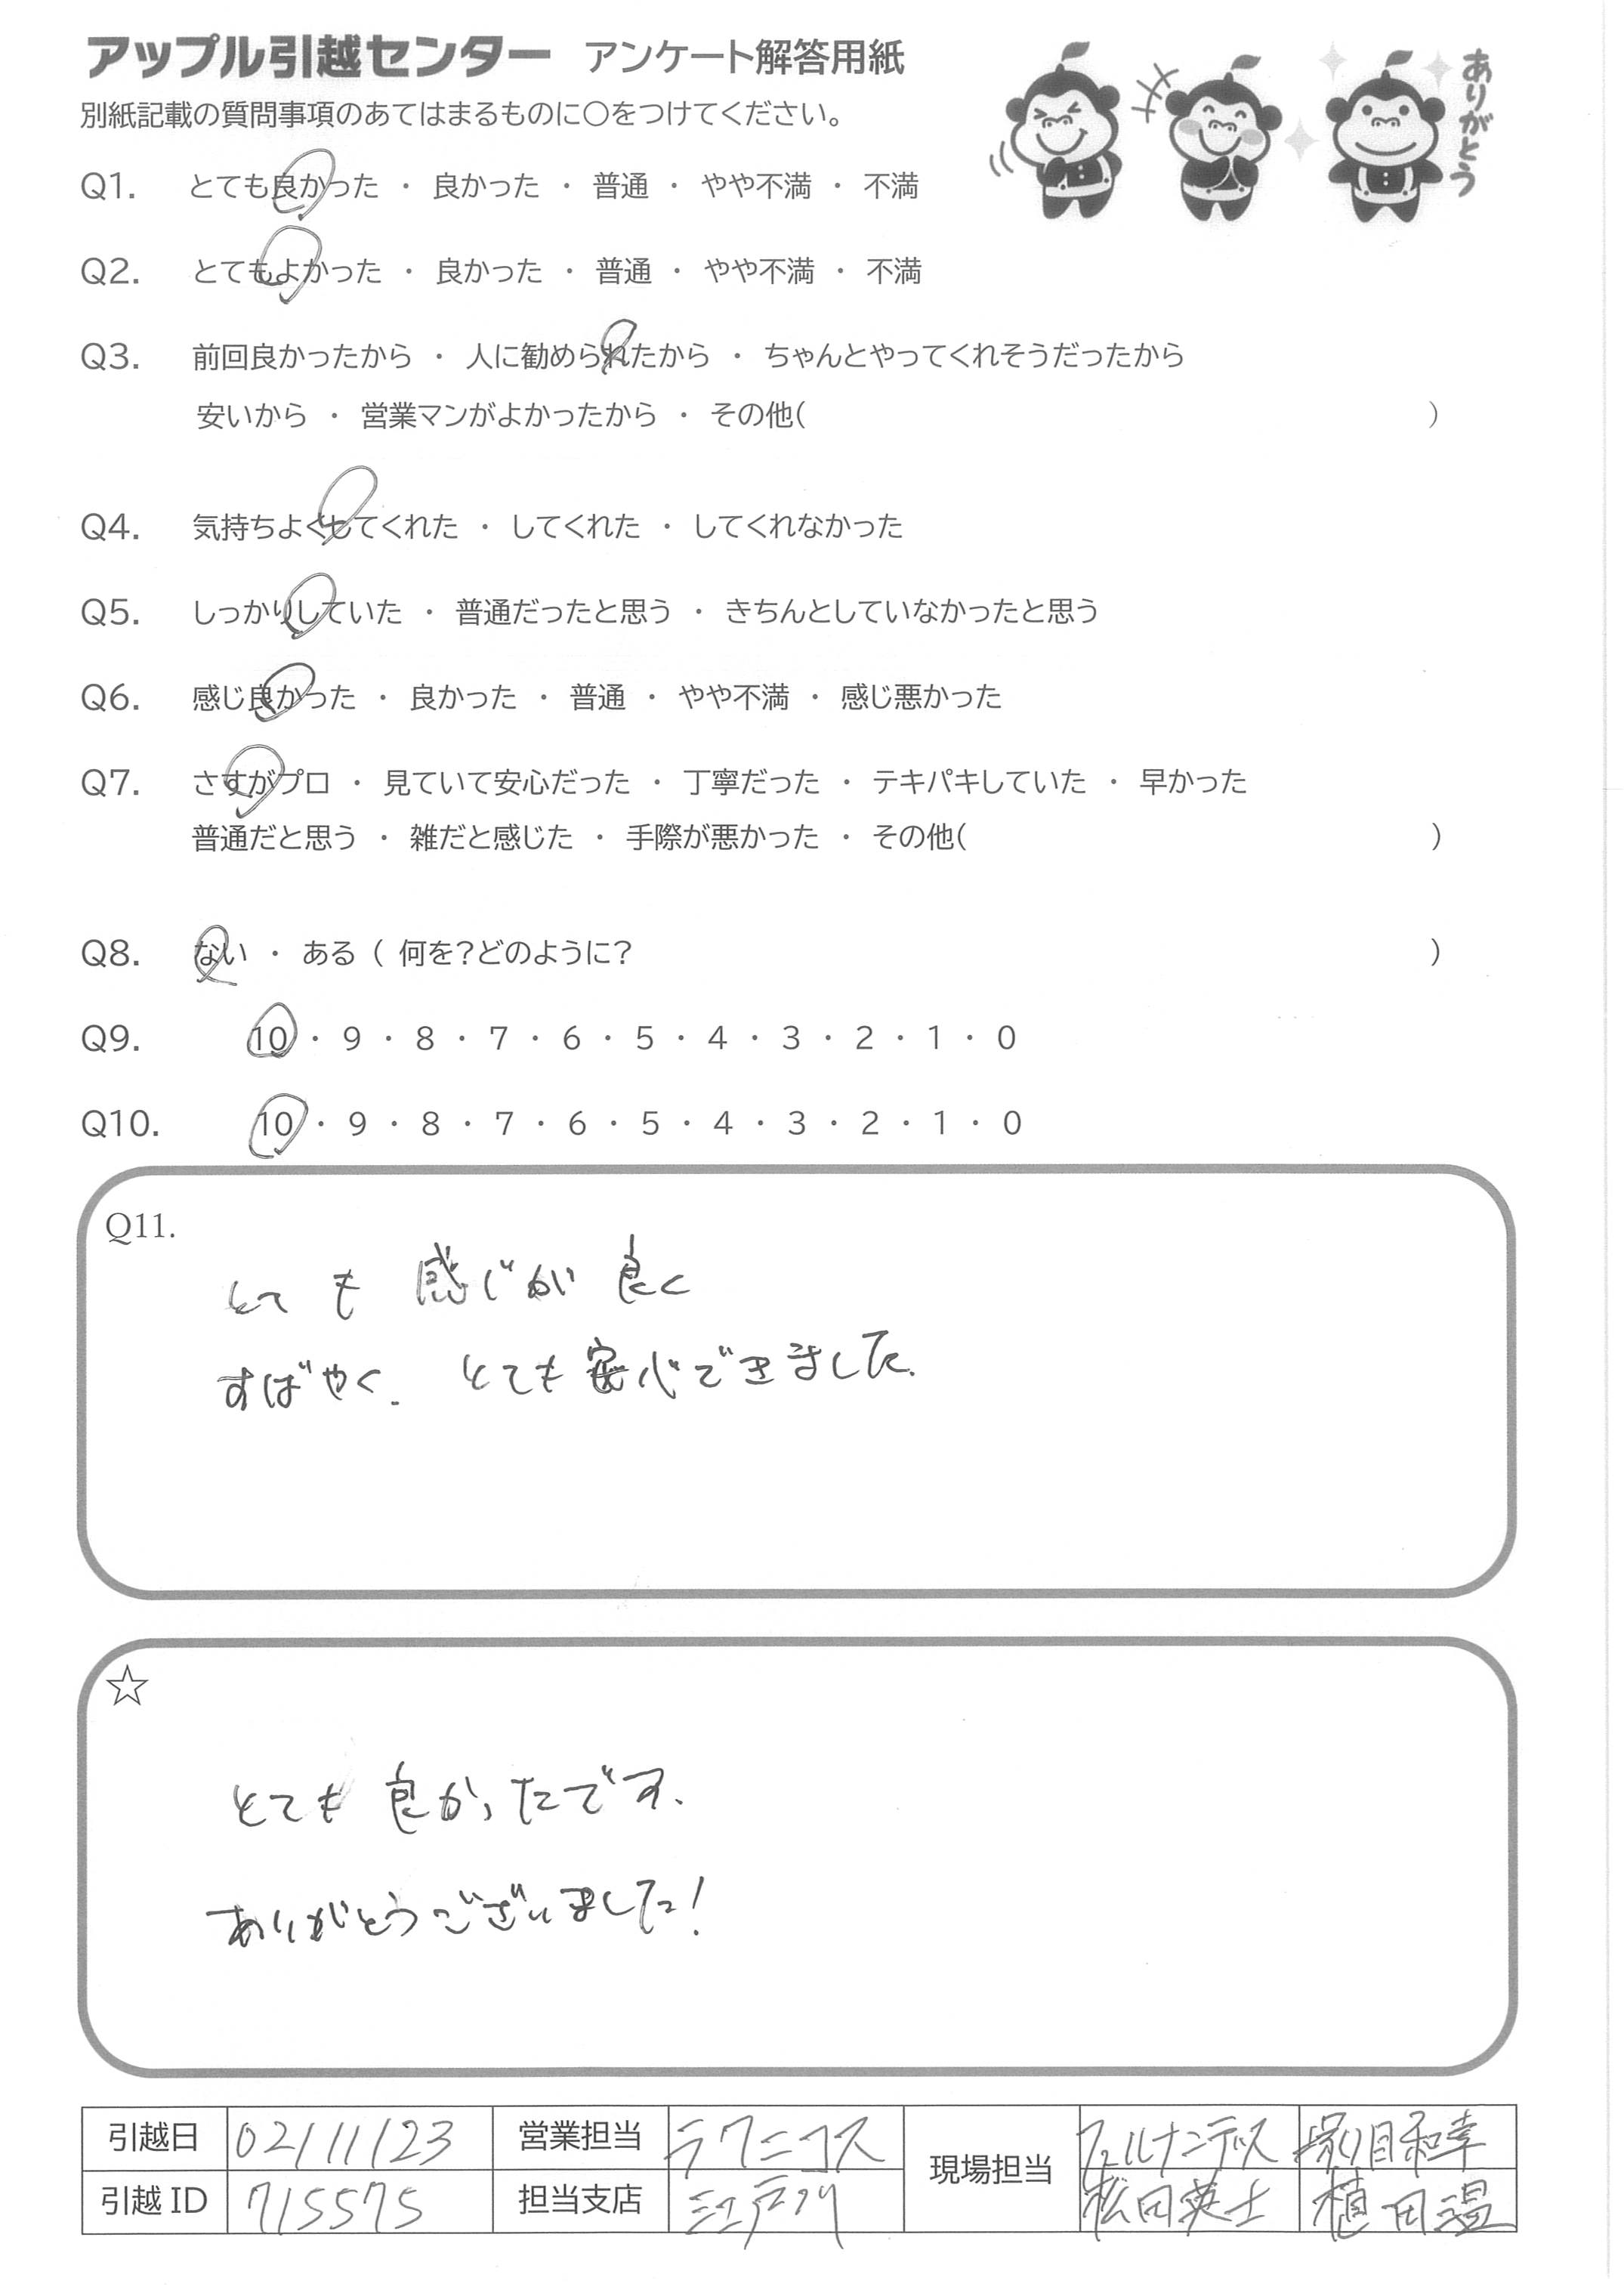 アップル引越センター アンケート解答用紙
別紙記載の質問事項のあてはまるものに〇をつけてください。
ありがとう
Q1. とても良かった ・ 良かった ・ 普通 ・ やや不満 ・ 不満
Q2. とてもよかった ・ 良かった ・ 普通 ・ やや不満 ・ 不満
Q3. 前回良かったから ・ 人に勧められたから ・ ちゃんとやってくれそうだったから
安いから ・ 営業マンがよかったから ・ その他( )
Q4. 気持ちよくしてくれた ・ してくれた ・ してくれなかった
Q5. しっかりしていた ・ 普通だったと思う ・ きちんとしていなかったと思う
Q6. 感じ良かった ・ 良かった ・ 普通 ・ やや不満 ・ 感じ悪かった
Q7. さすがプロ ・ 見ていて安心だった ・ 丁寧だった ・ テキパキしていた ・ 早かった
普通だと思う ・ 雑だと感じた ・ 手際が悪かった ・ その他( )
Q8. ない ・ ある ( 何を?どのように? )
Q9. 10 ・ 9 ・ 8 ・ 7 ・ 6 ・ 5 ・ 4 ・ 3 ・ 2 ・ 1 ・ 0
Q10. 10 ・ 9 ・ 8 ・ 7 ・ 6 ・ 5 ・ 4 ・ 3 ・ 2 ・ 1 ・ 0
Q11.
とても 感じが良く
すばやく. とても安心できました.
☆
とても良かったです.
ありがとうございました!
引越日 02/11/23 営業担当 現場担当 フェルナンデス
引越ID 715575 担当支店 江戸川 松田英士 植田温